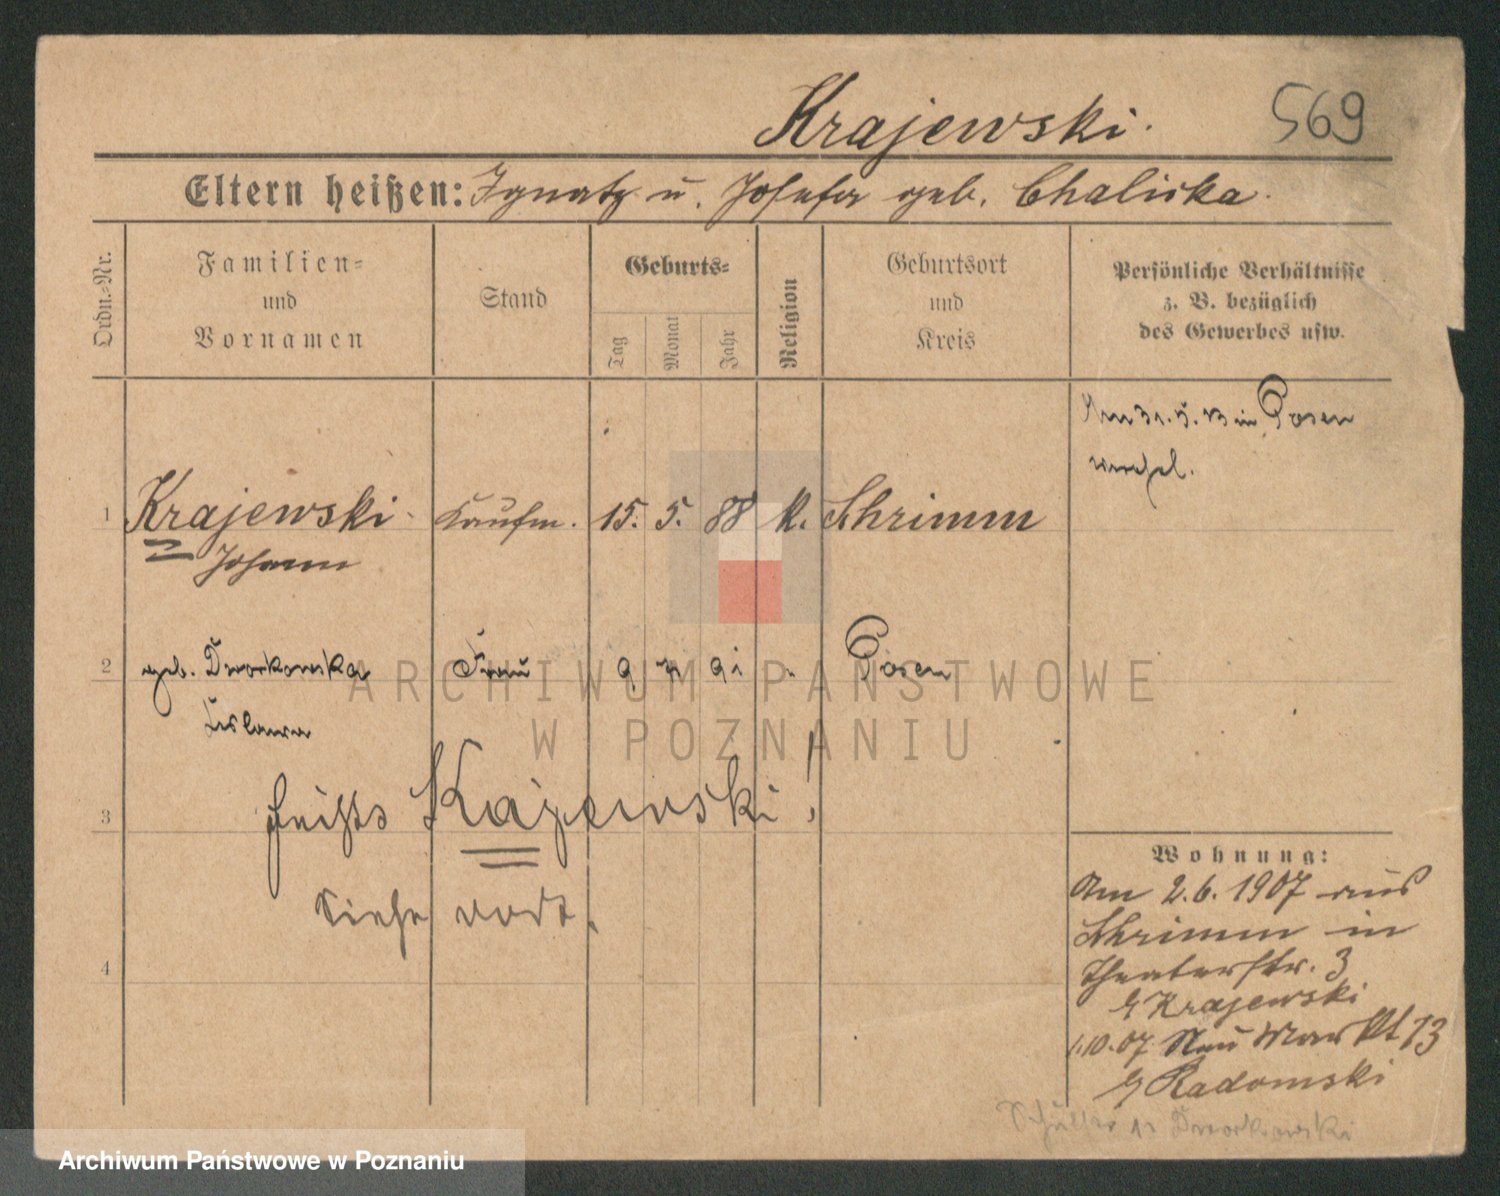 Krajewski.
569
Eltern heißen: Ignatz u. Josefa geb. Chaliska.
Ordn.-Nr.
Familien-
und
Vornamen
Stand
Geburts-
Tag
Monat
Jahr
Religion
Geburtsort
und
Kreis
Persönliche Verhältnisse
z. B. bezüglich
des Gewerbes usw.
Am 31. 5. 13 in Posen
verehel.
1 Krajewski Kaufm. 15. 5. 88 k. Schrimm
Johann
2 geb. Dworkowska Frau 9 91 Posen
3 heißt Kajewski!
Siehe dort.
4
Wohnung:
Am 2.6. 1907 aus
Schrimm in
Theaterstr. 3
Krajewski
1.10.07 Neu Markt 13
Radomski
Dworkowski
ARCHIWUM PAŃSTWOWE
W POZNANIU
Archiwum Państwowe w Poznaniu